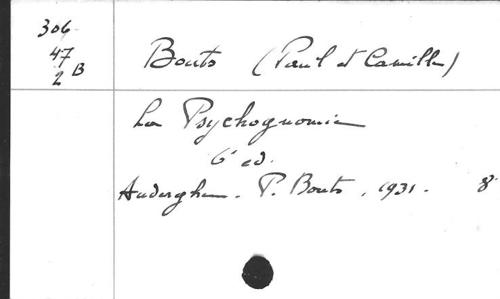 306
47
2 B
Bouts (Paul et Camille)
La Psychognomie
6e ed.
Auderghem. P. Bouts, 1931. 8°